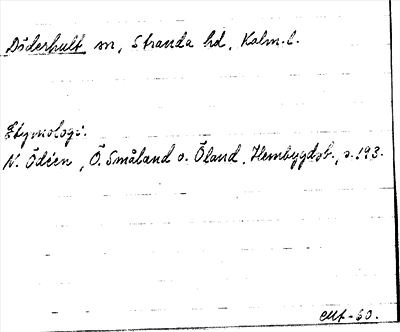 Döderhult sn, Stranda hd, Kalm.l.
Etymologi.
N. Ödéen, Ö. Småland o. Öland, Hembygdsb., s. 193.
-60.